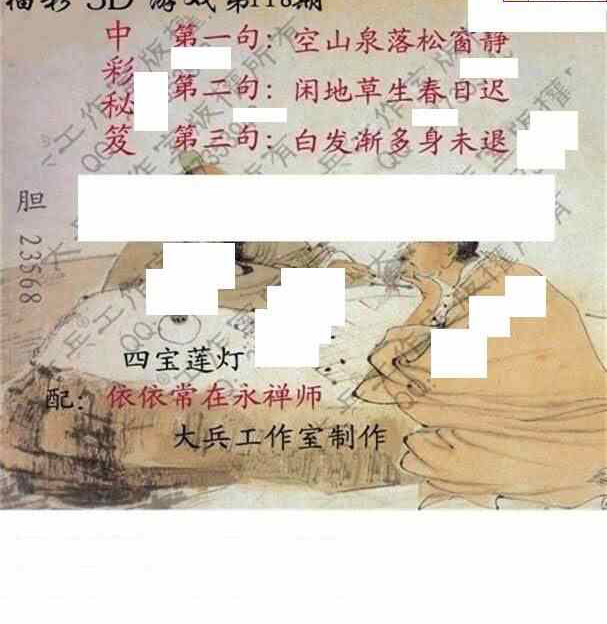 福彩 3D 游戏第118期
中彩秘笈
第一句：空山泉落松窗静
第二句：闲地草生春日迟
第三句：白发渐多身未退
胆 23568
四宝莲灯
配：依依常在永禅师
大兵工作室制作